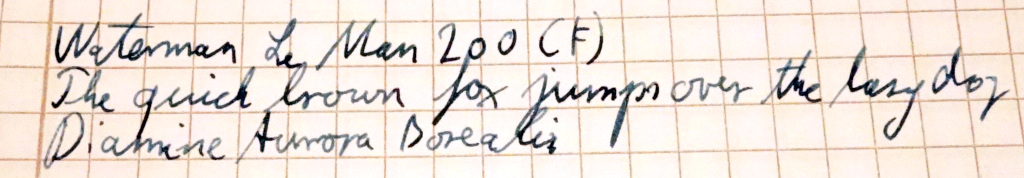 Waterman Le Man 200 (F)
The quick brown fox jumps over the lazy dog
Diamine Aurora Borealis